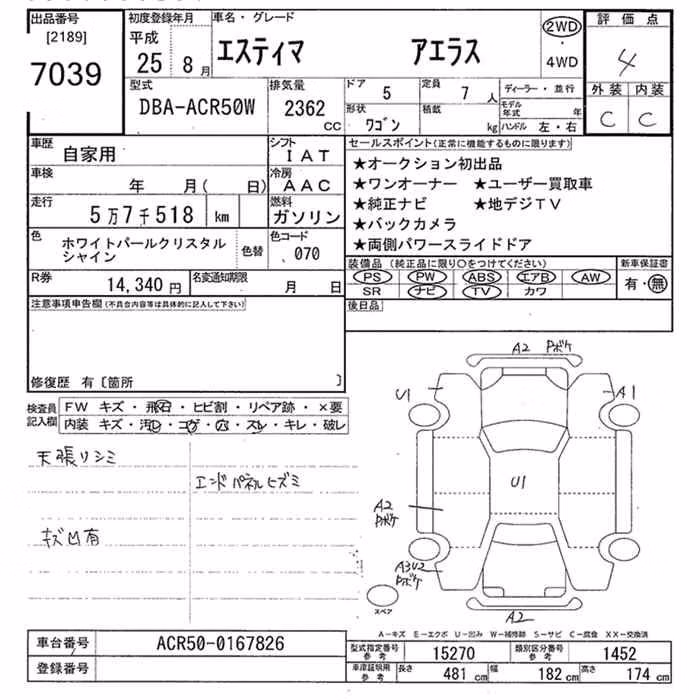 出品番号 初度登録年月 車名・グレード 評価点
[2189] 平成 2WD
7039 25 8月 エスティマ アエラス ・ 4
4WD
型式 排気量 ドア 5 定員 7人 ディーラー・並行 外装 内装
DBA-ACR50W 2362 CC 形状 ワゴン 積載 kg モデル年式 年 C C
ハンドル 左・右
車歴 自家用 シフト IAT セールスポイント(正常に機能するものに限ります)
車検 年 月( 日) 冷房 AAC ★オークション初出品
走行 5万7千518 km 燃料 ガソリン ★ワンオーナー ★ユーザー買取車
★純正ナビ ★地デジTV
色 ホワイトパールクリスタル 色替 色コード 070 ★バックカメラ
シャイン ★両側パワースライドドア
R券 14,340円 名変通知期限 月 日 装備品(純正品に限り○をつけてください) 新車保証書
PS PW ABS エアB AW 有・無
SR ナビ TV カワ
注意事項申告欄(不具合内容等は具体的に記入して下さい) 後日品
修復歴 有〔箇所 〕
検査員 FW キズ・飛石・ヒビ割・リペア跡・×要
記入欄 内装 キズ・汚レ・コゲ・穴・スレ・キレ・破レ
天張リシミ
エンドパネルヒズミ
キズ凹有
A2 Pボケ
U1 A1
U1
A2
Pボケ
A3U2
Pボケ
スペア A2
A-キズ E-エクボ U-凹み W-補修跡 S-サビ C-腐食 XX-交換済
車台番号 ACR50-0167826 型式指定番号 参考 15270 類別区分番号 参考 1452
登録番号 車庫証明用 参考 長さ 481cm 幅 182cm 高さ 174cm